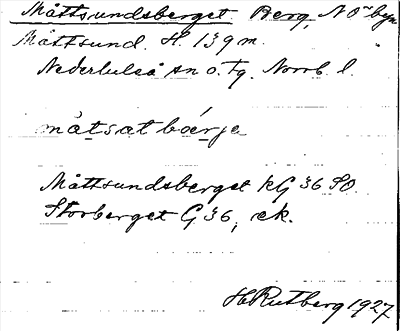 Måttsundsberget Berg, N ö byn
Måttsund. H. 139 m.
Nederluleå sn o. tg. Norrb. l.
måtsat bǿrje
Måttsundsberget kG 36 SO.
Storberget G 36, ek.
H Rutberg 1927